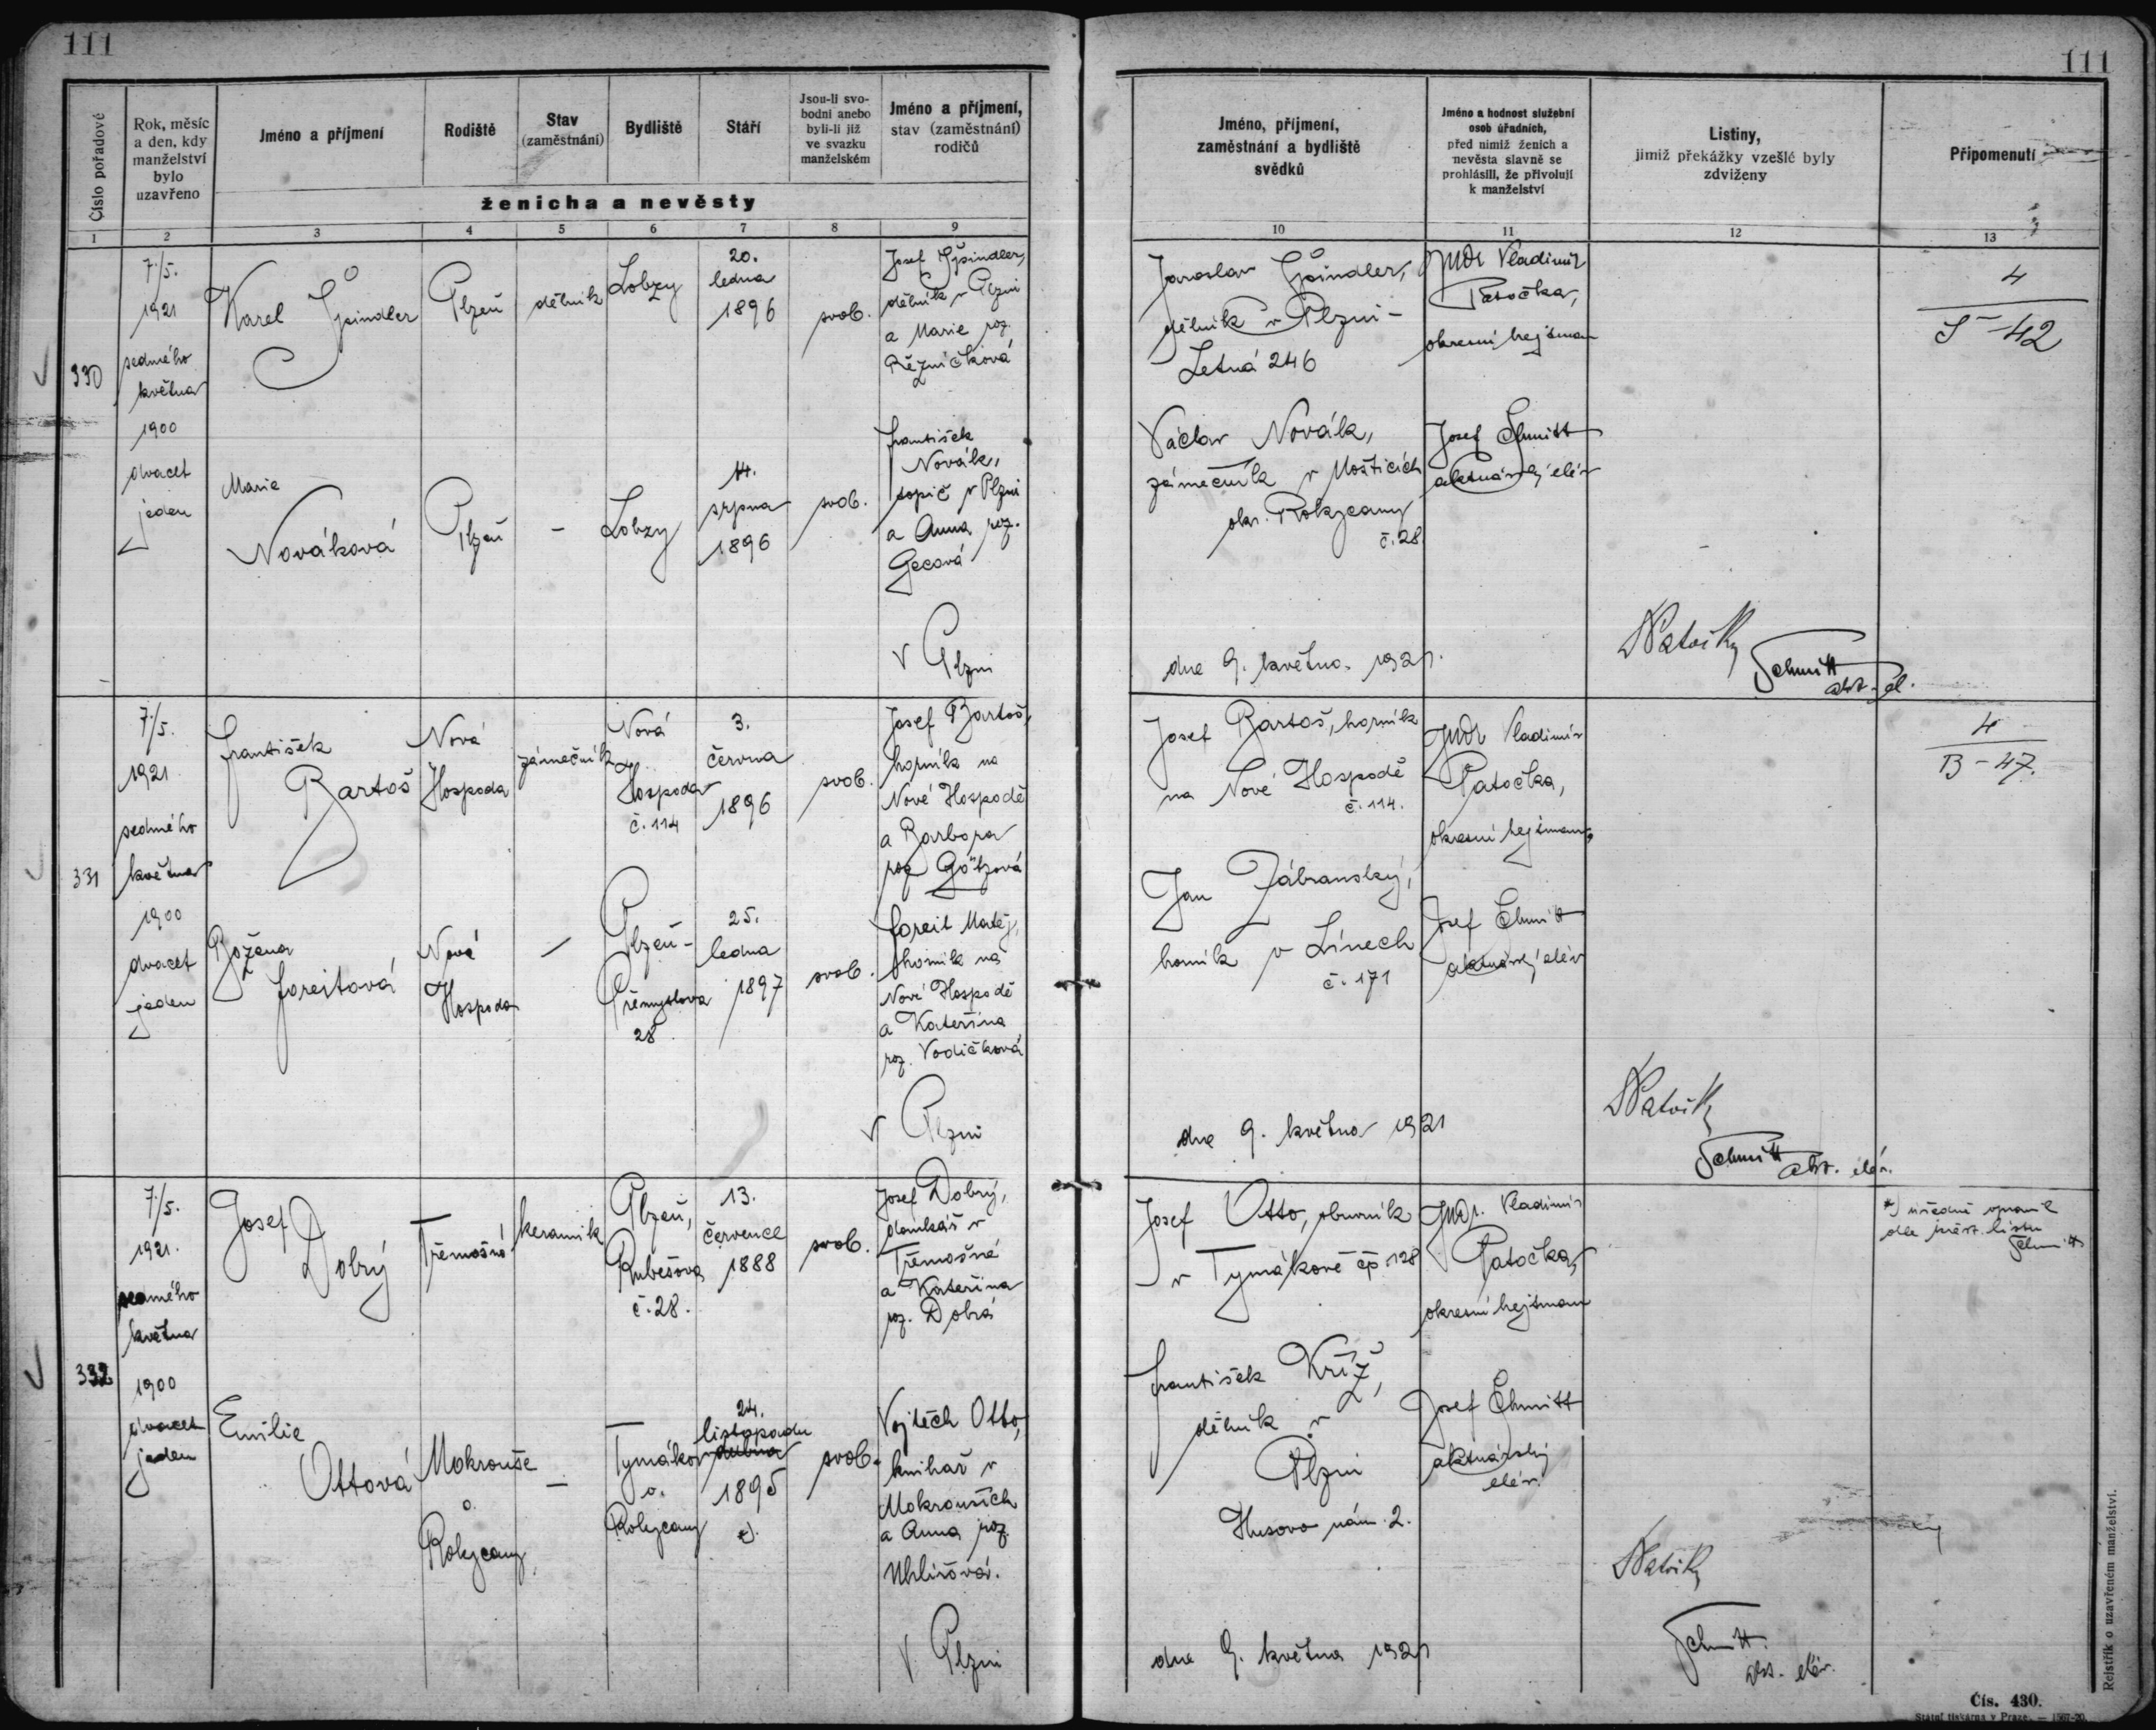 111
111
Číslo pořadové
Rok, měsíc
a den, kdy
manželství
bylo
uzavřeno
Jméno a příjmení
Rodiště
Stav
(zaměstnání)
Bydliště
Stáří
Jsou-li svo-
bodni anebo
byli-li již
ve svazku
manželském
Jméno a příjmení,
stav (zaměstnání)
rodičů
ženicha a nevěsty
Jméno, příjmení,
zaměstnání a bydliště
svědků
Jméno a hodnost služební
osob úřadních,
před nimiž ženich a
nevěsta slavně se
prohlásili, že přivolují
k manželství
Listiny,
jimiž překážky vzešlé byly
zdviženy
Připomenutí
1 2 3 4 5 6 7 8 9
10 11 12 13
330
7./5.
1921
sedmého
května
1900
dvacet
jeden
Karel Špindler
Plzeň
dělník
Lobzy
20.
ledna
1896
svob.
Josef Špindler,
dělník v Plzni
a Marie roz.
Řezníčková
Marie
Nováková
Plzeň
-
Lobzy
14.
srpna
1896
svob.
František
Novák,
topič v Plzni
a Anna roz.
Gecová
V Plzni
Jaroslav Špindler,
dělník v Plzni -
Letná 246
Václav Novák,
zámečník v
okr. Rokycany
č. 28
dne 9. května 1921.
JUDr Vladimír
Patočka,
okresní hejtman
Josef Schmitt
aktuárský elév
Schmitt
akt. el.
4
S - 42
331
7./5.
1921
sedmého
května
1900
dvacet
jeden
František
Bartoš
Nová
Hospoda
zámečník
Nová
Hospoda
č. 114
3.
června
1896
svob.
Josef Bartoš,
horník na
Nové Hospodě
a Barbora
roz. Götzová
Božena
Foreitová
Nová
Hospoda
-
Plzeň -
Přemyslova
28
25.
ledna
1897
svob.
Foreit Matěj,
horník na
Nové Hospodě
a Kateřina
roz. Vodičková
V Plzni
Josef Bartoš, horník
na Nové Hospodě
č. 114.
Jan Zábranský,
horník v Línech
č. 171
dne 9. května 1921
JUDr Vladimír
Patočka,
okresní hejtman,
Josef Schmitt
aktuárský elév
Schmitt
akt. elév.
4
B - 47.
332
7./5.
1921.
sedmého
května
1900
dvacet
jeden
Josef
Dobrý
Třemošná
keramik
Plzeň,
Rubešova
č. 28.
13.
července
1888
svob.
Josef Dobrý,
domkář v
Třemošné
a Kateřina
roz. Dobrá
Emilie
Ottová
Mokrouše
o.
Rokycany
-
Tymákov
o.
Rokycany
24.
listopadu
dubna
1895
*).
svob.
Vojtěch Otto,
knihař v
Mokrouších
a Anna roz.
Uhlířová.
V Plzni
Josef Otto, obuvník
v Tymákově čp. 128
František Kříž,
dělník v
Plzni
Husovo nám. 2.
dne 9. května 1921
JUDr. Vladimír
Patočka,
okresní hejtman
Josef Schmitt
aktuárský
elév.
Schmitt
akt. elév.
*) úředně opravil
dle křest. listu
Schmitt
Rejstřík o uzavřeném manželství.
Čís. 430.
Státní tiskárna v Praze. — 1567-20.